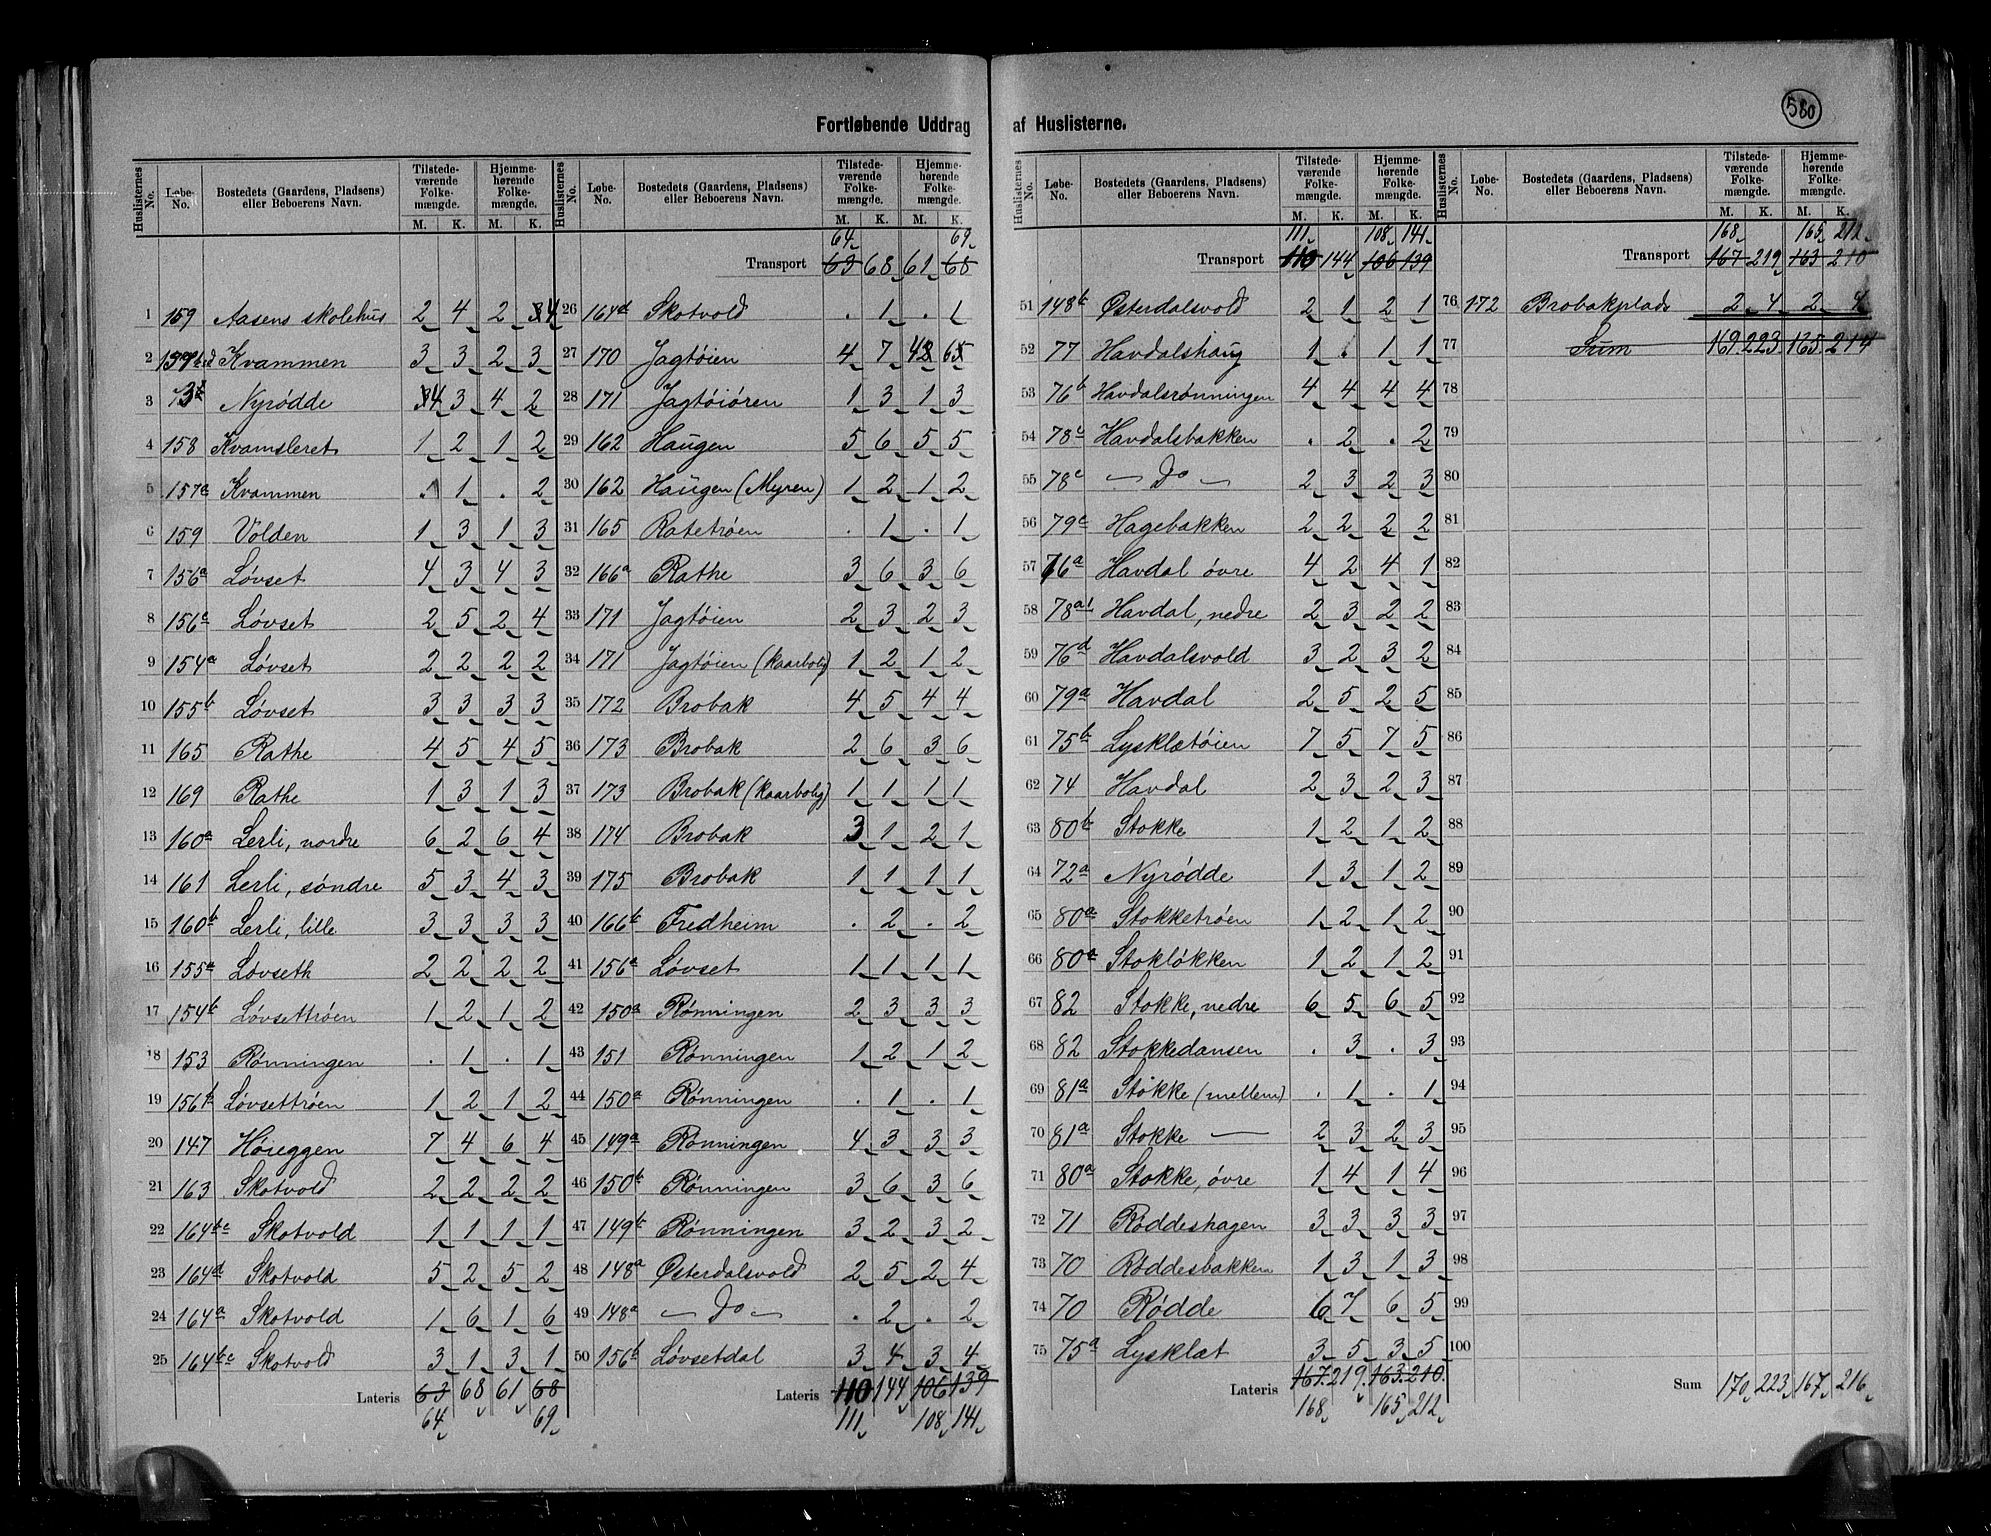 580
Fortløbende Uddrag af Huslisterne.
Huslisternes No. Løbe-No. Bostedets (Gaardens, Pladsens) eller Beboerens Navn. Tilstedeværende Folkemængde. M. K. Hjemmehørende Folkemængde. M. K.
1 159 Aasens skolehus 2 4 2 4
2 Kvammen 3 3 2 3
3 Nyrødde 4 3 4 2
4 158 Kvamsleret 1 2 1 2
5 157a Kvammen . 1 . 2
6 159 Volden 1 3 1 3
7 156a Løvset 4 3 4 3
8 156c Løvset 2 5 2 4
9 154a Løvset 2 2 2 2
10 155b Løvset 3 3 3 3
11 165 Rathe 4 5 4 5
12 169 Rathe 1 3 1 3
13 160a Lerli, nordre 6 2 6 4
14 161 Lerli, søndre 5 3 4 3
15 160b Lerli, lille 3 3 3 3
16 155a Løvseth 2 2 2 2
17 154b Løvsettrøen 1 2 1 2
18 153 Rønningen . 1 . 1
19 156b Løvsettrøen 1 2 1 2
20 147 Høieggen 7 4 6 4
21 163 Skotvold 2 2 2 2
22 164bc Skotvold 1 1 1 1
23 164d Skotvold 5 2 5 2
24 164a Skotvold 1 6 1 6
25 164bc Skotvold 3 1 3 1
Lateris 63 68 61 68
64 69
Huslisternes No. Løbe-No. Bostedets (Gaardens, Pladsens) eller Beboerens Navn. Tilstedeværende Folkemængde. M. K. Hjemmehørende Folkemængde. M. K.
64 69
Transport 63 68 61 68
26 164d Skotvold . 1 . 1
27 170 Jagtøien 4 7
28 171 Jagtøiøren 1 3 1 3
29 162 Haugen 5 6 5 5
30 162 Haugen (Myren) 1 2 1 2
31 165 Ratetrøen . 1 . 1
32 166a Rathe 3 6 3 6
33 171 Jagtøien 2 3 2 3
34 171 Jagtøien (kaarbolig) 1 2 1 2
35 172 Brobak 4 5 4 4
36 173 Brobak 2 6 3 6
37 173 Brobak (kaarbolig) 1 1 1 1
38 174 Brobak 3 1 2 1
39 175 Brobak 1 1 1 1
40 166b Fredheim . 2 . 2
41 156a Løvset 1 1 1 1
42 150a Rønningen 2 3 3 3
43 151 Rønningen 1 2 1 2
44 150a Rønningen . 1 . 1
45 149a Rønningen 4 3 3 3
46 150b Rønningen 3 6 3 6
47 149b Rønningen 3 2 3 2
48 148a Østerdalsvold 2 5 2 4
49 148a — Do — . 2 . 2
50 156b Løvsetdal 3 4 3 4
Lateris 110 144 106 139
111 108 141
Huslisternes No. Løbe-No. Bostedets (Gaardens, Pladsens) eller Beboerens Navn. Tilstedeværende Folkemængde. M. K. Hjemmehørende Folkemængde. M. K.
111 108 141
Transport 110 144 106 139
51 148b Østerdalsvold 2 1 2 1
52 77 Havdalshaug 1 . 1 1
53 76b Havdalsrønningen 4 4 4 4
54 78c Havdalsbakken . 2 . 2
55 78c — Do — 2 3 2 3
56 79c Hagebakken 2 2 2 2
57 76a Havdal øvre 4 2 4 1
58 78a1 Havdal, nedre 2 3 2 2
59 76d Havdalsvold 3 2 3 2
60 79a Havdal 2 5 2 5
61 75b Lysklætøien 7 5 7 5
62 74 Havdal 2 3 2 3
63 80b Stokke 1 2 1 2
64 72a Nyrødde 1 3 1 2
65 80a Stokketrøen 1 2 1 2
66 80a Stokløkken 1 2 1 2
67 82 Stokke, nedre 6 5 6 5
68 82 Stokkedansen . 3 . 3
69 81a Stokke (mellem) . 1 . 1
70 81a Stokke — 2 3 2 3
71 80a Stokke, øvre 1 4 1 4
72 71 Røddeshagen 3 3 3 3
73 70 Røddesbakken 1 3 1 3
74 70 Rødde 6 7 6 5
75 75a Lysklæt 3 5 3 5
Lateris 167 219 163 210
168 165 212
Huslisternes No. Løbe-No. Bostedets (Gaardens, Pladsens) eller Beboerens Navn. Tilstedeværende Folkemængde. M. K. Hjemmehørende Folkemængde. M. K.
168 165 212
Transport 167 219 163 210
76 172 Brobakplads 2 4 2 4
77 Sum 169 223 165 214
78
79
80
81
82
83
84
85
86
87
88
89
90
91
92
93
94
95
96
97
98
99
100
Sum 170 223 167 216